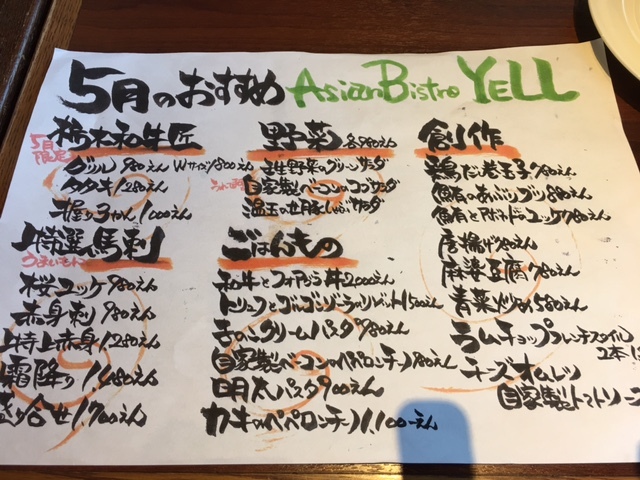 5月のおすすめ Asian Bistro YELL
栃木和牛匠
5月限定
グリル 980えん Wサイズ1,800えん
タタキ 1,280えん
握り3かん 1,000えん
特選馬刺
うまいもん
桜ユッケ 980えん
赤身刺 980えん
特上赤身 1,280えん
霜降り 1,480えん
盛り合せ 1,700えん
野菜 各980えん
野菜のグリーンサラダ
自家製ベーコンのコブサラダ
温玉の豚しゃぶサラダ
ごはんもの
和牛とフォアグラ丼 2,000えん
トリュフとゴルゴンゾーラのリゾット 1,500えん
きのこクリームパスタ 980えん
自家製ベーコンのペペロンチーノ 980えん
明太パスタ 900えん
カキのペペロンチーノ 1,100えん
創作
鶏だし巻玉子 780えん
鮪のあぶり 880えん
鮪とアボカドのユッケ 980えん
唐揚げ 780えん
麻婆豆腐 780えん
青菜炒め 580えん
ラムチョップフレンチスタイル
2本
チーズオムレツ
自家製トマトソース